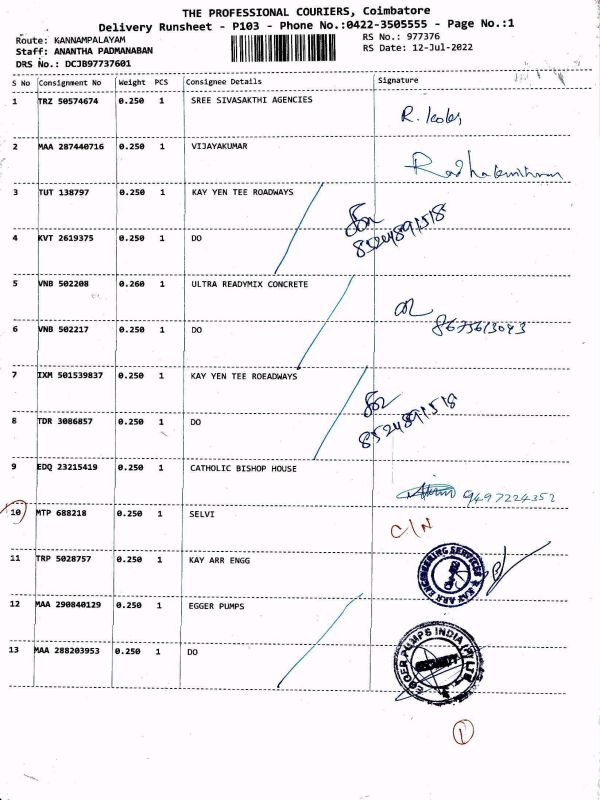 THE PROFESSIONAL COURIERS, Coimbatore
Delivery Runsheet - P103 - Phone No.:0422-3505555 - Page No.:1
Route: KANNAMPALAYAM RS No.: 977376
Staff: ANANTHA PADMANABAN RS Date: 12-Jul-2022
DRS No.: DCJB97737601
S No Consignment No Weight PCS Consignee Details Signature
1 TRZ 50574674 0.250 1 SREE SIVASAKTHI AGENCIES
2 MAA 287440716 0.250 1 VIJAYAKUMAR
Radhakrishnan
3 TUT 138797 0.250 1 KAY YEN TEE ROADWAYS
8524891518
4 KVT 2619375 0.250 1 DO
5 VNB 502208 0.260 1 ULTRA READYMIX CONCRETE
8675613043
6 VNB 502217 0.250 1 DO
7 IXM 501539837 0.250 1 KAY YEN TEE ROEADWAYS
8524891518
8 TDR 3086857 0.250 1 DO
9 EDQ 23215419 0.250 1 CATHOLIC BISHOP HOUSE
9497224352
10 MTP 688218 0.250 1 SELVI
C/N
11 TRP 5028757 0.250 1 KAY ARR ENGG
KAY ARR ENGINEERING SERVICES
12 MAA 290840129 0.250 1 EGGER PUMPS
13 MAA 288203953 0.250 1 DO
EGGER PUMPS INDIA (P) LTD
SECURITY
1